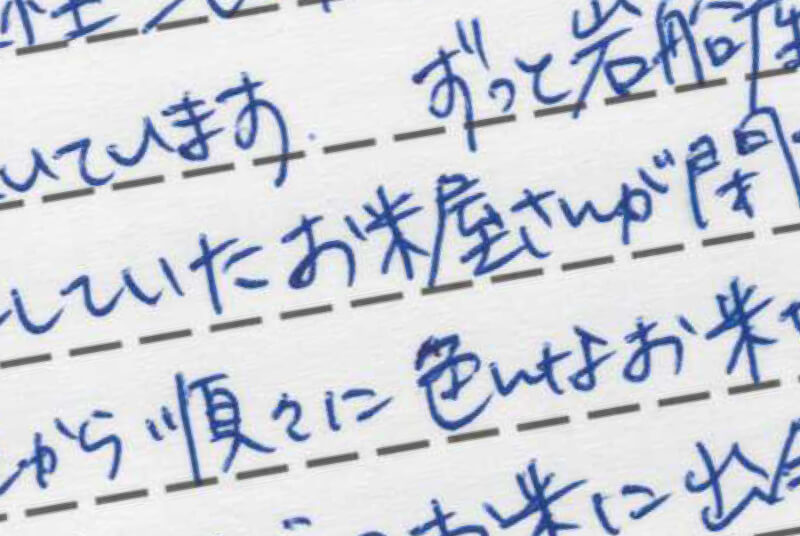 いています ずっと岩船産
していたお米屋さんが閉
から順々に色んなお米
お米に出会